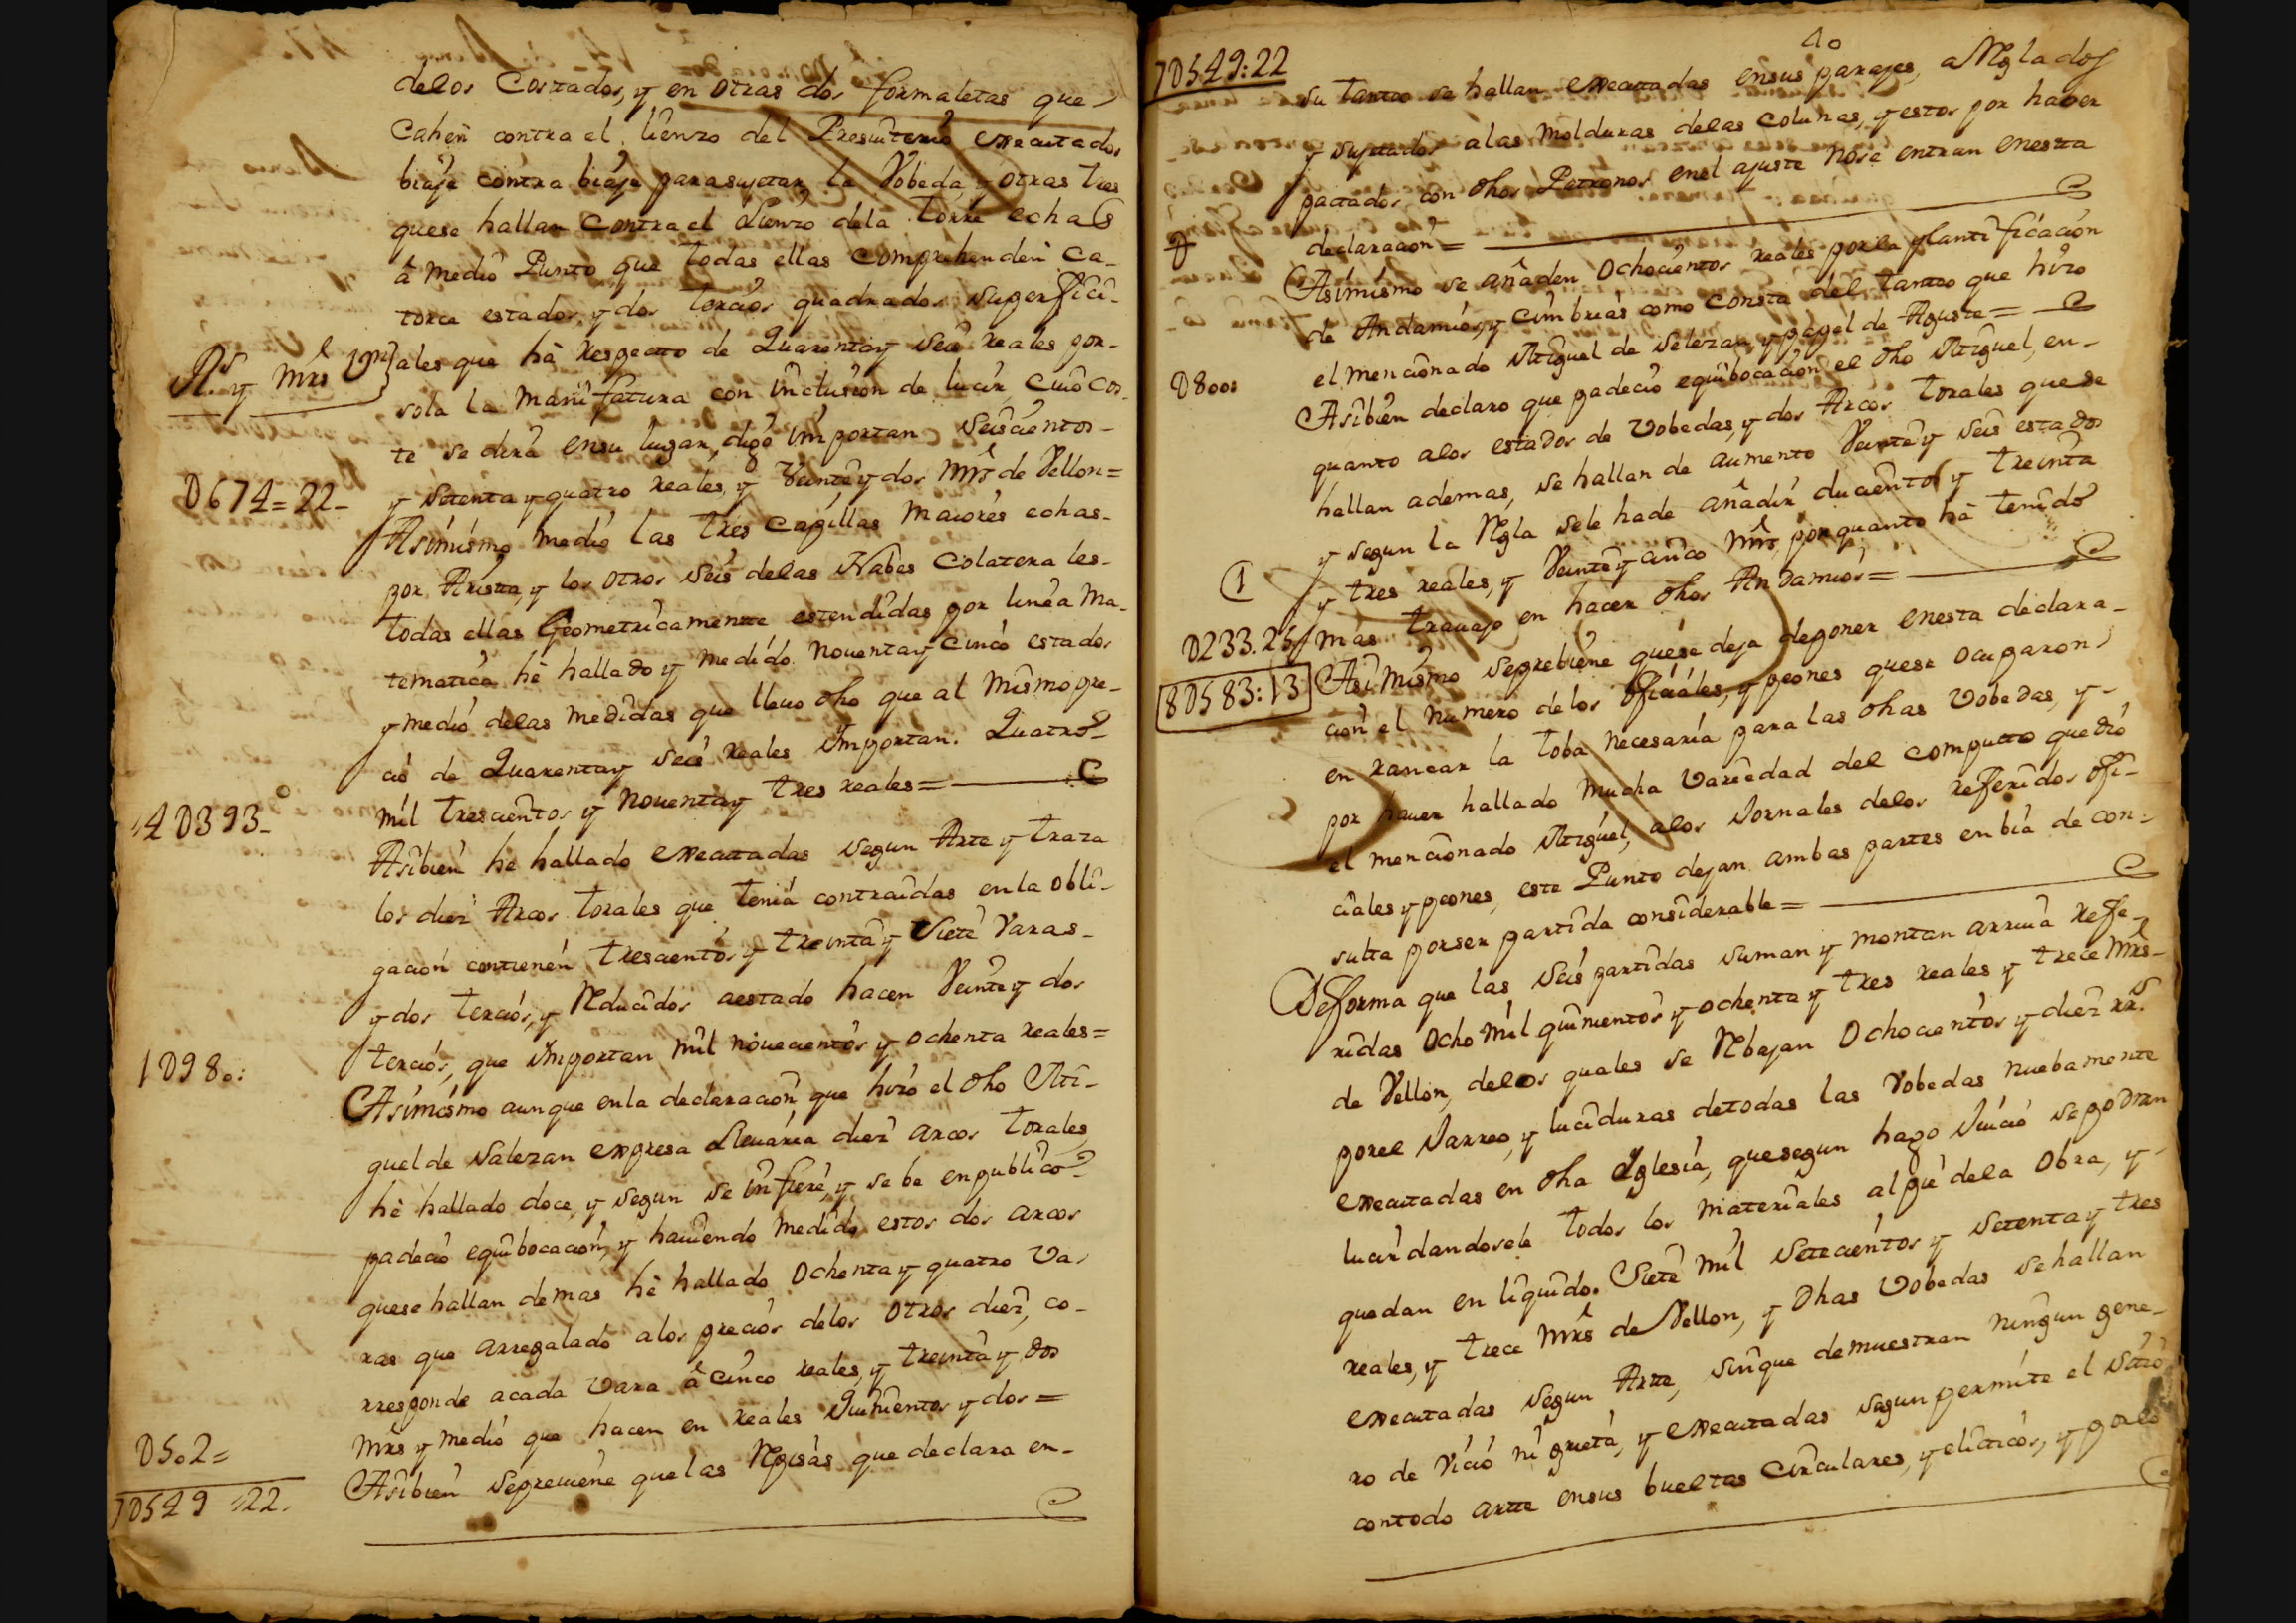 delos Costados, y en otras dos formaletas que
Cahen contra el lienzo del Presviterio executados
biaje contra biaje para sujetar la Vobeda y otras tres
quese hallan Contra el Lienzo dela torre echas
â medio Punto, que todas ellas comprehenden Ca-
torce estados, y dos tercios quadrados superfici-
Rs y mrs vn ales que hà Respecto de Quarenta y seis reales por
sola la manifatura con inclusion de lucir, cuio cos-
te se dirà ensu lugar, digo importan seiscientos-
D674=22- y setenta y quatro reales, y Veinte y dos mrs de Vellon=
Asimismo medio las tres Capillas maiores echas-
por Arista, y los otros seis delas Nabes Colaterales-
todas ellas Geometricamente estendidas por linea Ma-
tematica hè hallado y medido noventa y cinco estados
y medio delas medidas que llevo dho que al mismo pre-
cio de Quarenta y seis reales importan. Quatro
4D393- mil trescientos y noventa y tres reales=
Asibien he hallado executadas segun Arte y traza
los diez Arcos torales que tenia contraidas en la obli-
gacion contienen trescientos y treinta y siete Varas-
y dos tercios, y Reducidos aestado hacen Veinte y dos
1D980: tercios, que importan mil novecientos y ochenta reales=
Asimismo aunque enla declaracion que hizo el dho Mi-
guel de Salezan expresa Llevaria diez arcos torales
hè hallado doce, y segun se infiere, y se be en publico
padecio equibocacion, y haviendo medido estos dos arcos
quese hallan demas hè hallado ochenta y quatro Va-
ras que arregalado alos precios delos otros diez, co-
rresponde acada vara â cinco reales, y treinta y dos
D502= mrs y medio que hacen en reales quinientos y dos=
7D549 22. Asibien sepreviene que las Repisas que declara en-
40
7D549:22
su tanteo se hallan executadas ensus parajes, aReglados
y sujetados alas molduras delas colunas, y estos por haver
pactados con dhos Patronos enel ajuste nose entran enesta
declaracion=
Asimismo se añaden ochocientos reales porla plantificacion
de Andamios, y cimbrias como consta del tanteo que hizo
D800: el mencionado Miguel de Selezan, y papel de Ajuste=
Asibien declaro que padecio equibocacion el dho Miguel, en-
quanto alos estados de vobedas, y dos Arcos torales quese
hallan ademas, se hallan de aumento Veinte y seis estados
y segun la Regla sele hade añadir ducientos y treinta
1
y tres reales, y Veinte y cinco mrs, por quanto hà tenido
D233.25 mas travajo en hacer dhos Andamios=
8D583:13 Asimismo seprebiene quese deja deponer enesta declara-
cion el numero delos oficiales, y peones quese ocuparon
en rancar la toba necesaria para las dhas vobedas, y-
por haver hallado mucha variedad del computto quedio
el mencionado Miguel, alos Jornales delos Referidos ofi-
ciales y peones, este Punto dejan ambas partes enbia de con-
sulta porser partida considerable=
Deforma que las seis partidas suman y montan arriva Refe-
ridas ocho mil quinientos y ochenta y tres reales y trece mrs-
de Vellon, delos quales se Rebajan ochocientos y diez rrs.
porel Jarreo, y luciduras detodas las Vobedas nuebamente
executadas en dha Iglesia, quesegun hago Juicio sepodran
lucir dandosele todos los materiales alpie dela obra, y-
quedan en liquido. Siete mil setecientos y setenta y tres
reales, y trece mrs de Vellon, y Dhas vobedas sehallan
executadas segun Arte, sinque demuestran ningun gene-
ro de vicio ni grieta, y executadas segun permite el sitio
contodo arte ensus bueltas Circulares, y eliticos, y porlo